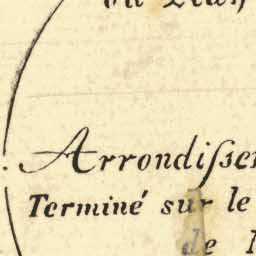 Arrondiſſe
Terminé sur le
de